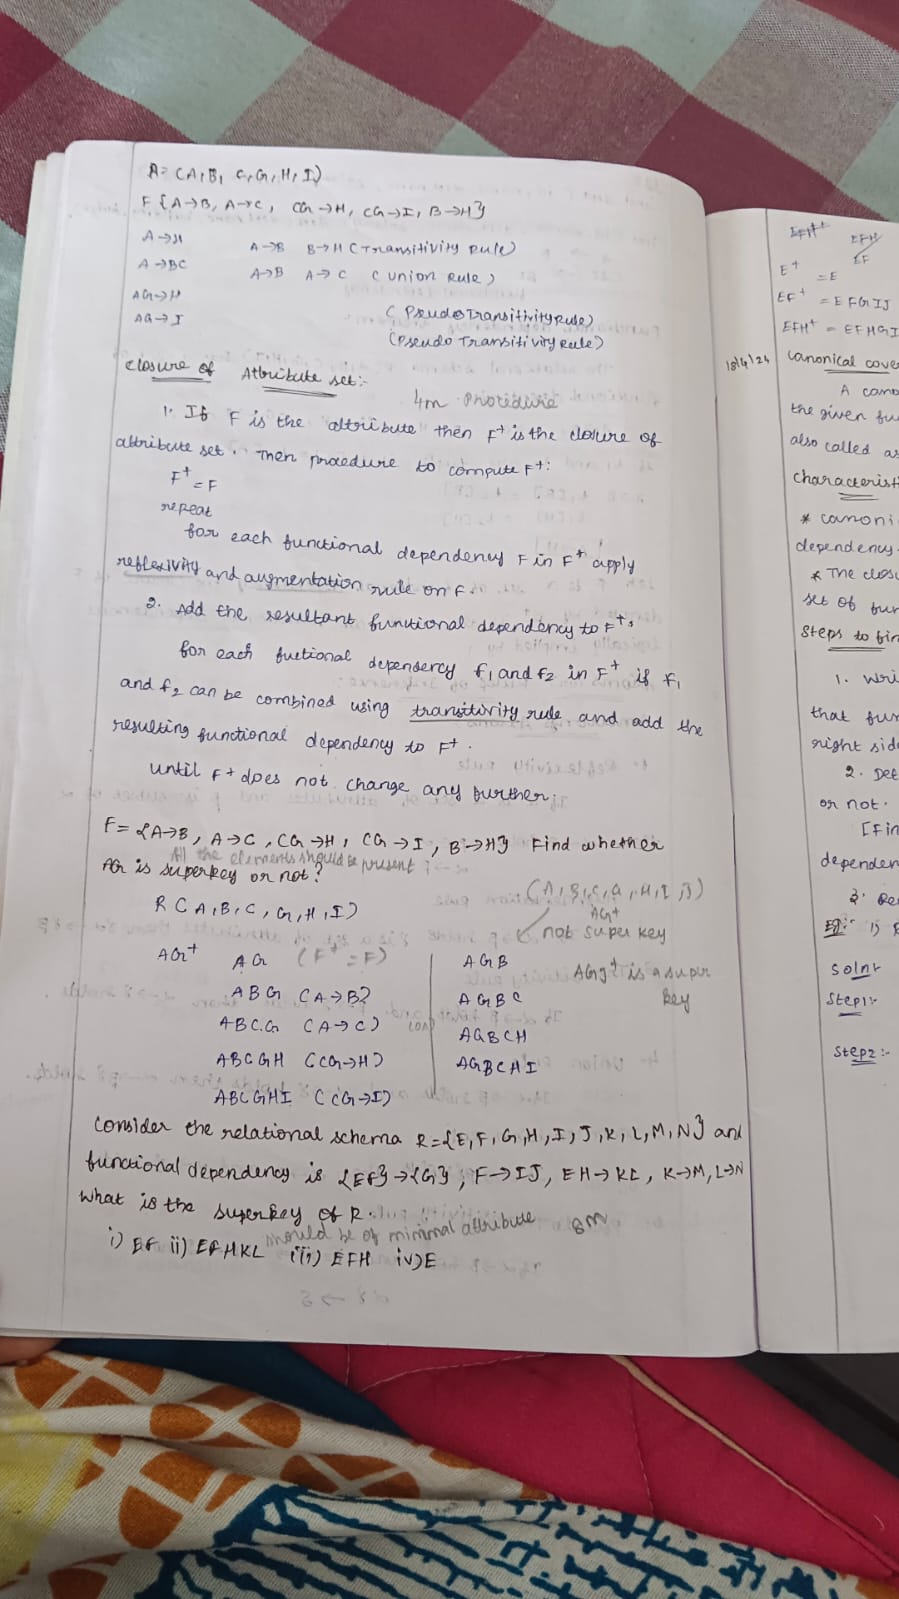 A = (A, B, C, G, H, I)
F {A→B, A→C, CG→H, CG→I, B→H}
A→H A→B B→H (Transitivity Rule)
A→BC A→B A→C (Union Rule)
AG→H (Pseudo Transitivity Rule)
AG→I (Pseudo Transitivity Rule)
Closure of Attribute set:-
4m Procedure
1. If F is the attribute then F+ is the closure of
attribute set. Then procedure to compute F+:
F+ = F
repeat
for each functional dependency F in F+ apply
reflexivity and augmentation rule on F.
2. Add the resultant functional dependency to F+.
for each fuctional dependency f1 and f2 in F+ if F1
and f2 can be combined using transitivity rule and add the
resulting functional dependency to F+.
until F+ does not change any further.
F = {A→B, A→C, CG→H, CG→I, B→H} Find whether
All the elements should be present
AG is superkey or not?
(A, B, C, G, H, I, J)
R(A, B, C, G, H, I)
AG+
not super key
AG+ AG (F+ = F) AGB
AGJ+ is a super key
ABG (A→B) AGBC
ABCG (A→C) (or) AGBCH
ABCGH (CG→H) AGBCHI
ABCGHI (CG→I)
Consider the relational schema R={E, F, G, H, I, J, K, L, M, N} and
functional dependency is {EF}→{G}, F→IJ, EH→KL, K→M, L→N
What is the superkey of R.
should be of minimal attribute 8m
i) EF ii) EFHKL iii) EFH iv) E
EFH+ EFH
EF
E+ = E
EF+ = EFGIJ
EFH+ = EFHGI
18/4/24 Canonical cove
A cano
the given fu
also called as
characterist
* canoni
dependency
* The clos
set of fun
Steps to fin
1. Wri
that fun
right side
2. Det
or not.
[Fin
dependen
3. Re
Eg:- 1)
Soln:
Step1:-
Step2:-